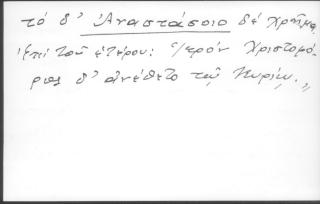 τὸ δ' Ἀναστάσοιο δέ χρῆμα
ἐπὶ τοῦ ἑτέρου: Ἱερὸν Χριστοφό-
ρος δ' ἀνέθετο τῷ Κυρίῳ.